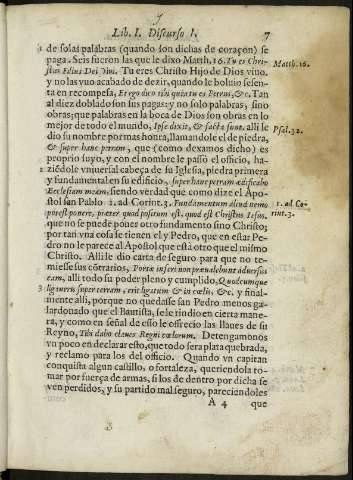 Lib. I. Discurso I. 7
de solas palabras (quando son dichas de coraçon) se
paga. Seis fueron las que le dixo Matth. 16. Tu es Chri-
stus Filius Dei vivi. Tu eres Christo Hijo de Dios viuo.
y no las vuo acabado de dezir, quando le boluio sesen-
ta en recompẽsa, Et ego dico tibi quia tu es Petrus, &c. Tan
al diez doblado son sus pagas: y no solo palabras, sino
obras; que palabras en la boca de Dios son obras en lo
mejor de todo el mundo, Ipse dixit, & facta sunt. alli le
dio su nombre por mas honra, llamandole el de piedra,
& super hanc petram, que (como dexamos dicho) es
proprio suyo, y con el nombre le passò el officio, ha-
ziẽdole vniuersal cabeça de su Iglesia, piedra primera
y fundamental en su edificio, super hanc petram ædificabo
Ecclesiam meam, siendo verdad que como dize el Apo-
stol san Pablo. 1. ad Corint. 3. Fundamentum aliud nemo
potest ponere, præter quod positum est, quod est Christus Iesus.
que no se puede poner otro fundamento sino Christo;
por tan vna cosa le tienen el y Pedro, que en estar Pe-
dro no le parece al Apostol que està otro que el mismo
Christo. Alli le dio carta de seguro para que no te-
miesse sus cõtrarios, Portæ inferi non præualebunt aduersus
eam, alli todo su poder pleno y cumplido, Quodcumque
ligaueris super terram, erit ligatum & in cœlis. &c. y final-
mente alli, porque no quedasse san Pedro menos ga-
lardonado que el Bautista, se le rindio en cierta mane-
ra, y como en señal de esso le offrecio las llaues de su
Reyno, Tibi dabo claues Regni cœlorum. Detengamonos
vn poco en declarar esto, que todo sera plata quebrada,
y reclamo para los del officio. Quando vn capitan
conquista algun castillo, o fortaleza, queriendola to-
mar por fuerça de armas, si los de dentro por dicha se
ven perdidos, y su partido mal seguro, pareciendoles
A 4 que
Matth. 16.
Psal. 32.
1. ad Co-
rint. 3.